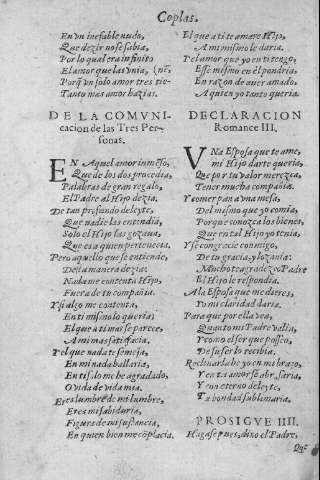 Coplas.
En vn inefable nudo,
Que dezir no se sabia,
Por lo qual era infinito
El amor que las vnia,
Porq̃ vn solo amor tres tiẽ
Tanto mas amor hazias.
DE LA COMVNI
cacion de las Tres Per-
sonas.
EN Aquel amor inmẽso,
Que de los dos procedia,
Palabras de gran regalo,
El Padre al Hijo dezia.
De tan profundo deleyte,
Que nadie las entendia,
Solo el Hijo las gozaua,
Que es a quien pertenecia.
Pero aquello que se entiende,
Desta manera dezia:
Nada me contenta Hijo,
Fuera de tu compañia.
Y si algo me contenta,
En ti mismo lo queria;
El que a ti mas se parece,
A mi mas satisfacia,
Y el que nada te semeja,
En mi nada hallaria,
En ti solo me he agradado,
O vida de vida mia.
Eres lumbre de mi lumbre,
Eres mi sabiduria,
Figura de mi sustancia,
En quien bien me cõplacia.
El que a ti te amare Hijo,
A mi mismo le daria.
Y el amor que yo en ti tengo,
Esse mismo en el pondria
En razon de auer amado,
A quien yo tanto queria.
DECLARACION
Romance III.
VNa Esposa que te ame,
mi Hijo darte queria,
Que por tu valor merezca,
Tener mucha compañia.
Y comer pan a vna mesa,
Del mismo que yo comia,
Porque conozca los bienes,
Que en tal Hijo yo tenia,
Y se congracie conmigo,
De tu gracia, y lozania:
Mucho te agradezco Padre
El Hijo le respondia.
A la Esposa que me dieres,
Yo mi claridad daria.
Para que por ella vea,
Quanto mi Padre valia,
Y como el ser que posseo,
De su ser lo recibia.
Reclinarla he yo en mi brazo,
Y en tu amor se abrasaria,
Y con eterno deleyte,
Tu bondad sublimaria.
PROSIGVE IIII.
Hagase pues, dixo el Padre,
Que